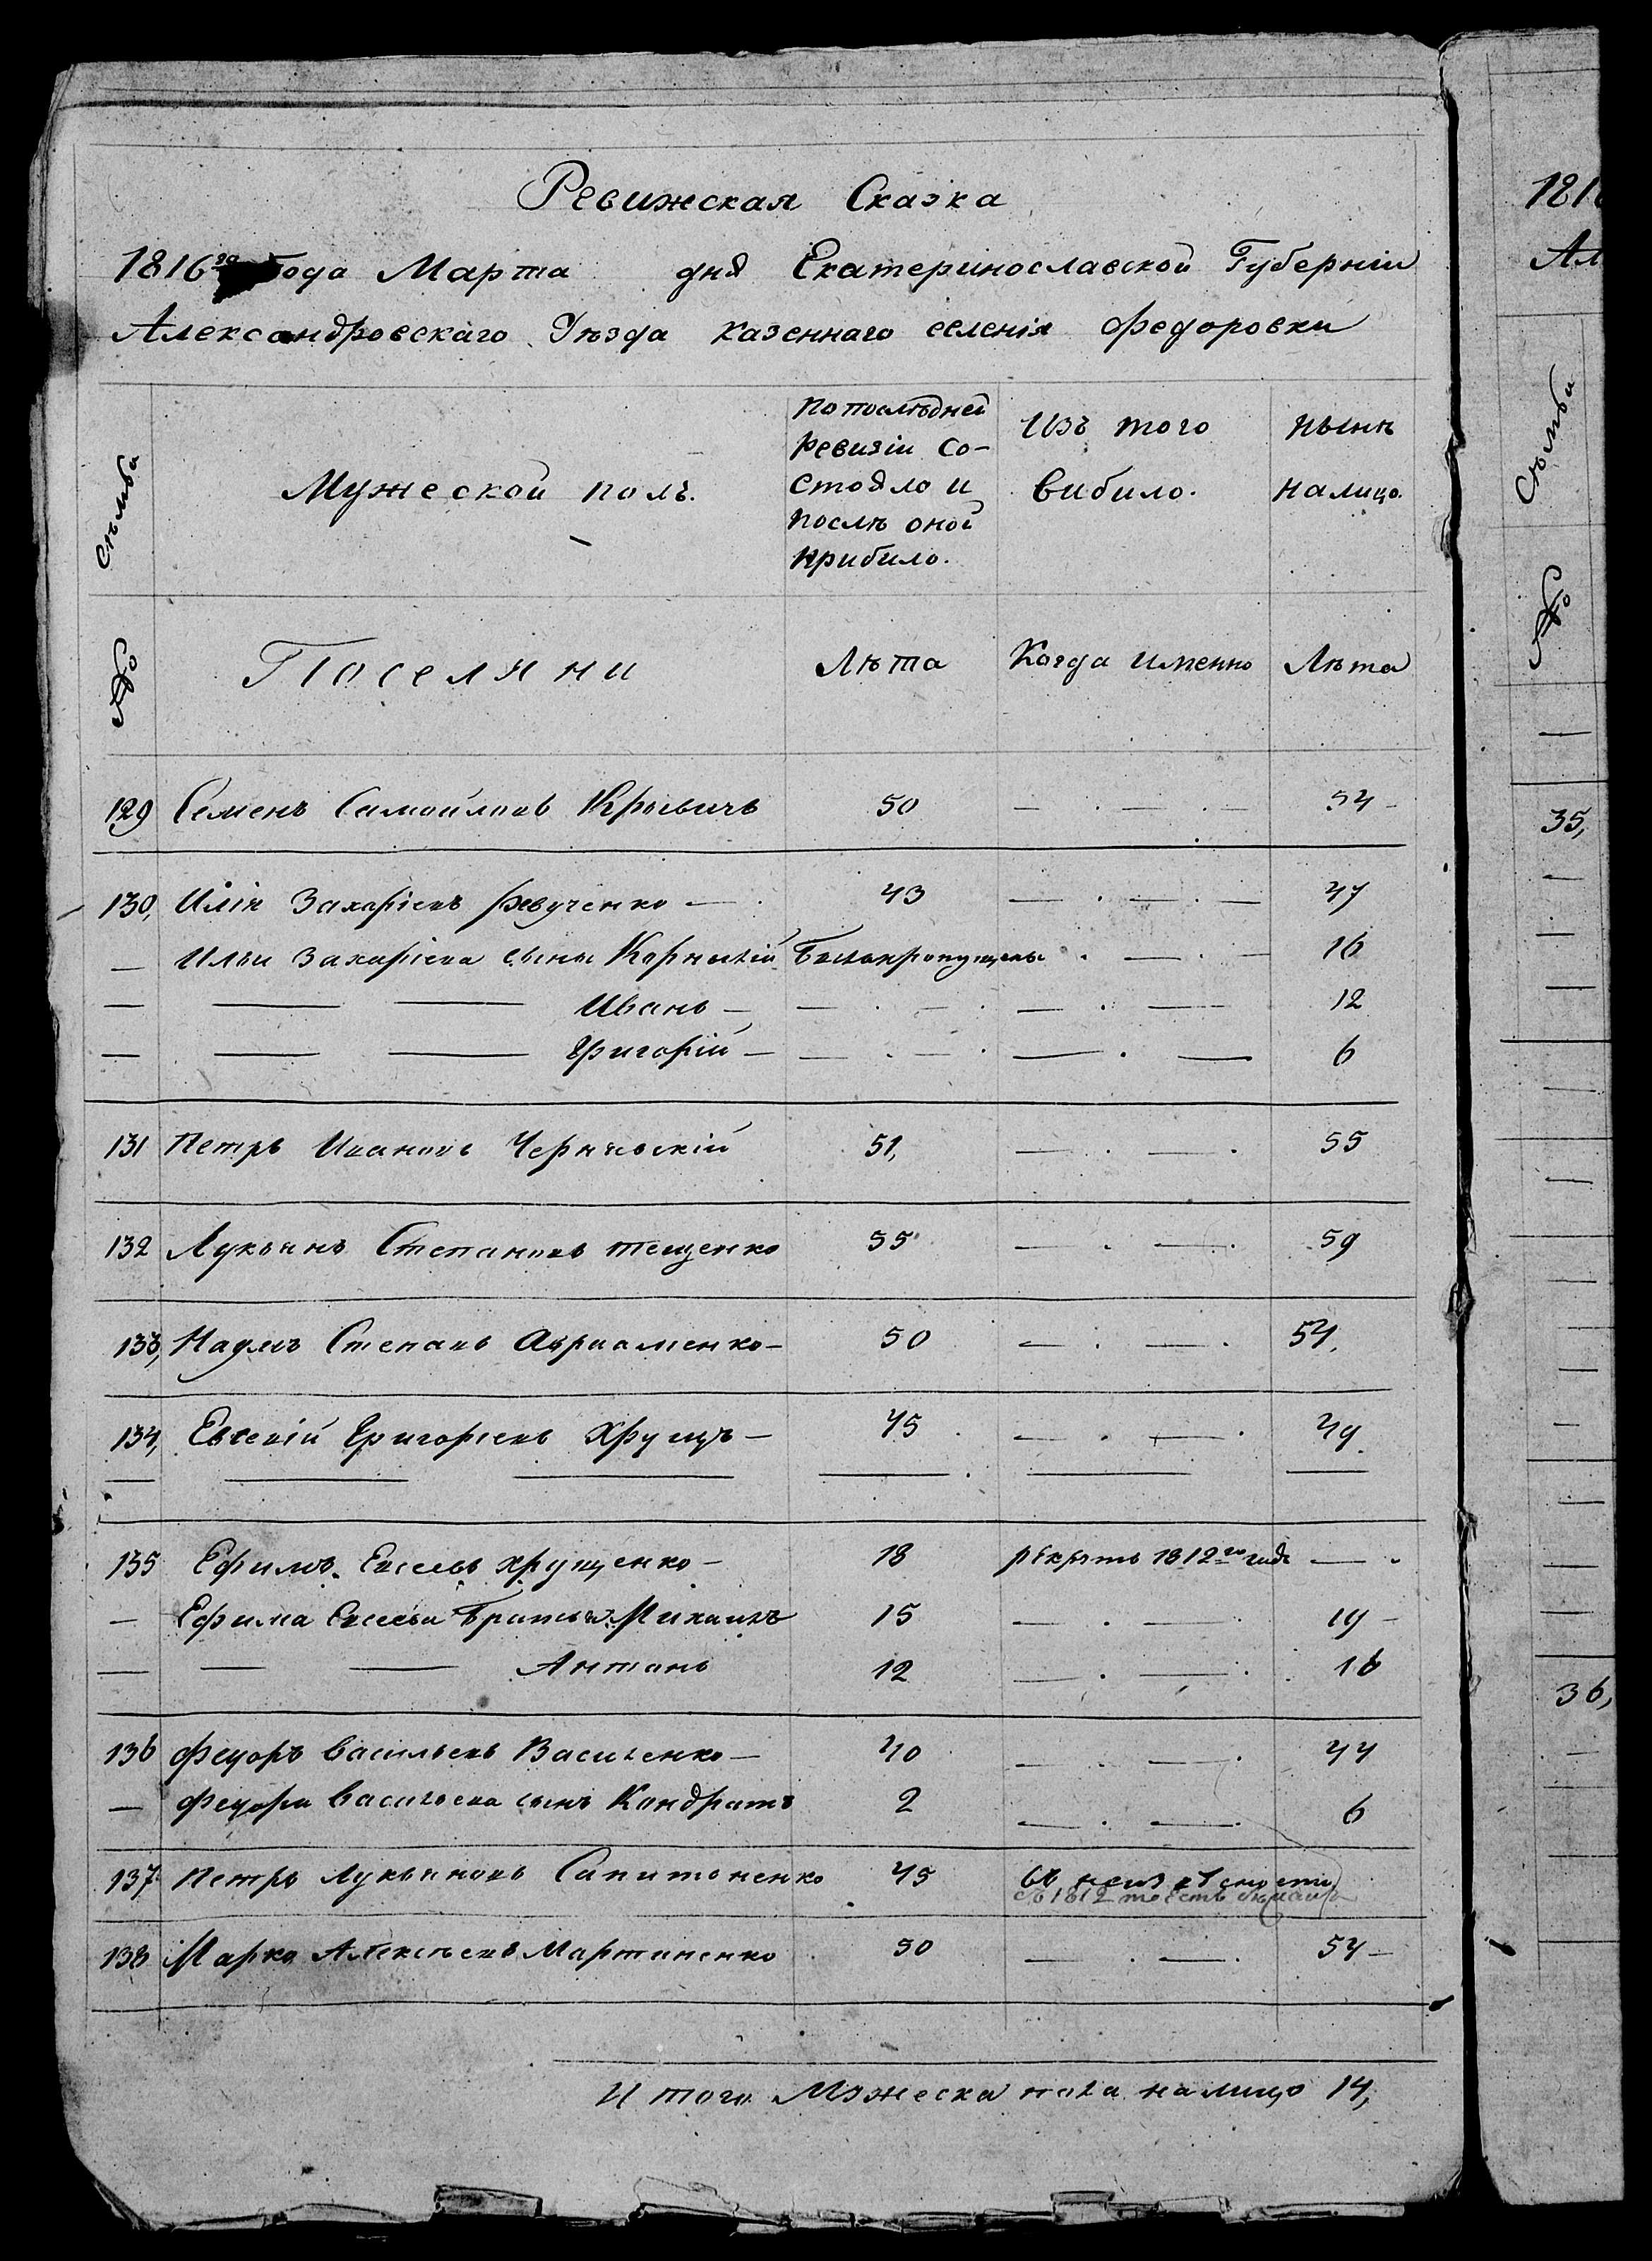 Ревижская Сказка
1816го Года Марта дня Екатеринославской Губерніи
Александровскаго Уѣзда казеннаго селенія Федоровки
Семьи
Мужеской полъ.
По последней Ревизіи Со-
стояло и
послѣ оной
прибило.
Изъ того
вибило.
нынѣ
налицо.
№
Поселяни
Лѣта
Когда именно
Лѣта
129 Семенъ Самойловъ 50 — . — . — 54 —
130, Илія Захаріевъ — 43 — . — . — 47
— Ильи Захаріева сыны Корнилій Былъ пропущены . — . — 16
— — — Иванъ — — . — . — . — 12
— — — Григорій — — . — . — . — 6
131 Петръ Ивановъ Чернявскій 51, — . — . 55
132 Лукьянъ Степановъ Тещенко 55 — . — . 59
133, Наумъ Степановъ Авраменко — 50 — . — . 54.
134, Евсевій Григоріевъ Хрущъ — 45 — . — . 49.
— — — — . — —
135 Ефимъ Евсеевъ Хрущенко — 18 рекрутъ 1812го года — .
— Ефима Евсеева Братья Михаилъ 15 — . — 19 —
— — — Антонъ 12 — . — . 16
136 Федоръ Васильевъ Василенко — 40 — . — . 44
— Федора Васильева сынъ Кондратъ 2 — . — . 6
137 Петръ Лукьяновъ Сапитоненко 45 въ неизвѣстности
съ 1812
138 Марко Алексѣевъ Мартиненко 50 — . — . 54 —
Итого Мужеска пола налицо 14,
181
Ал
Семьи
№
35,
36,